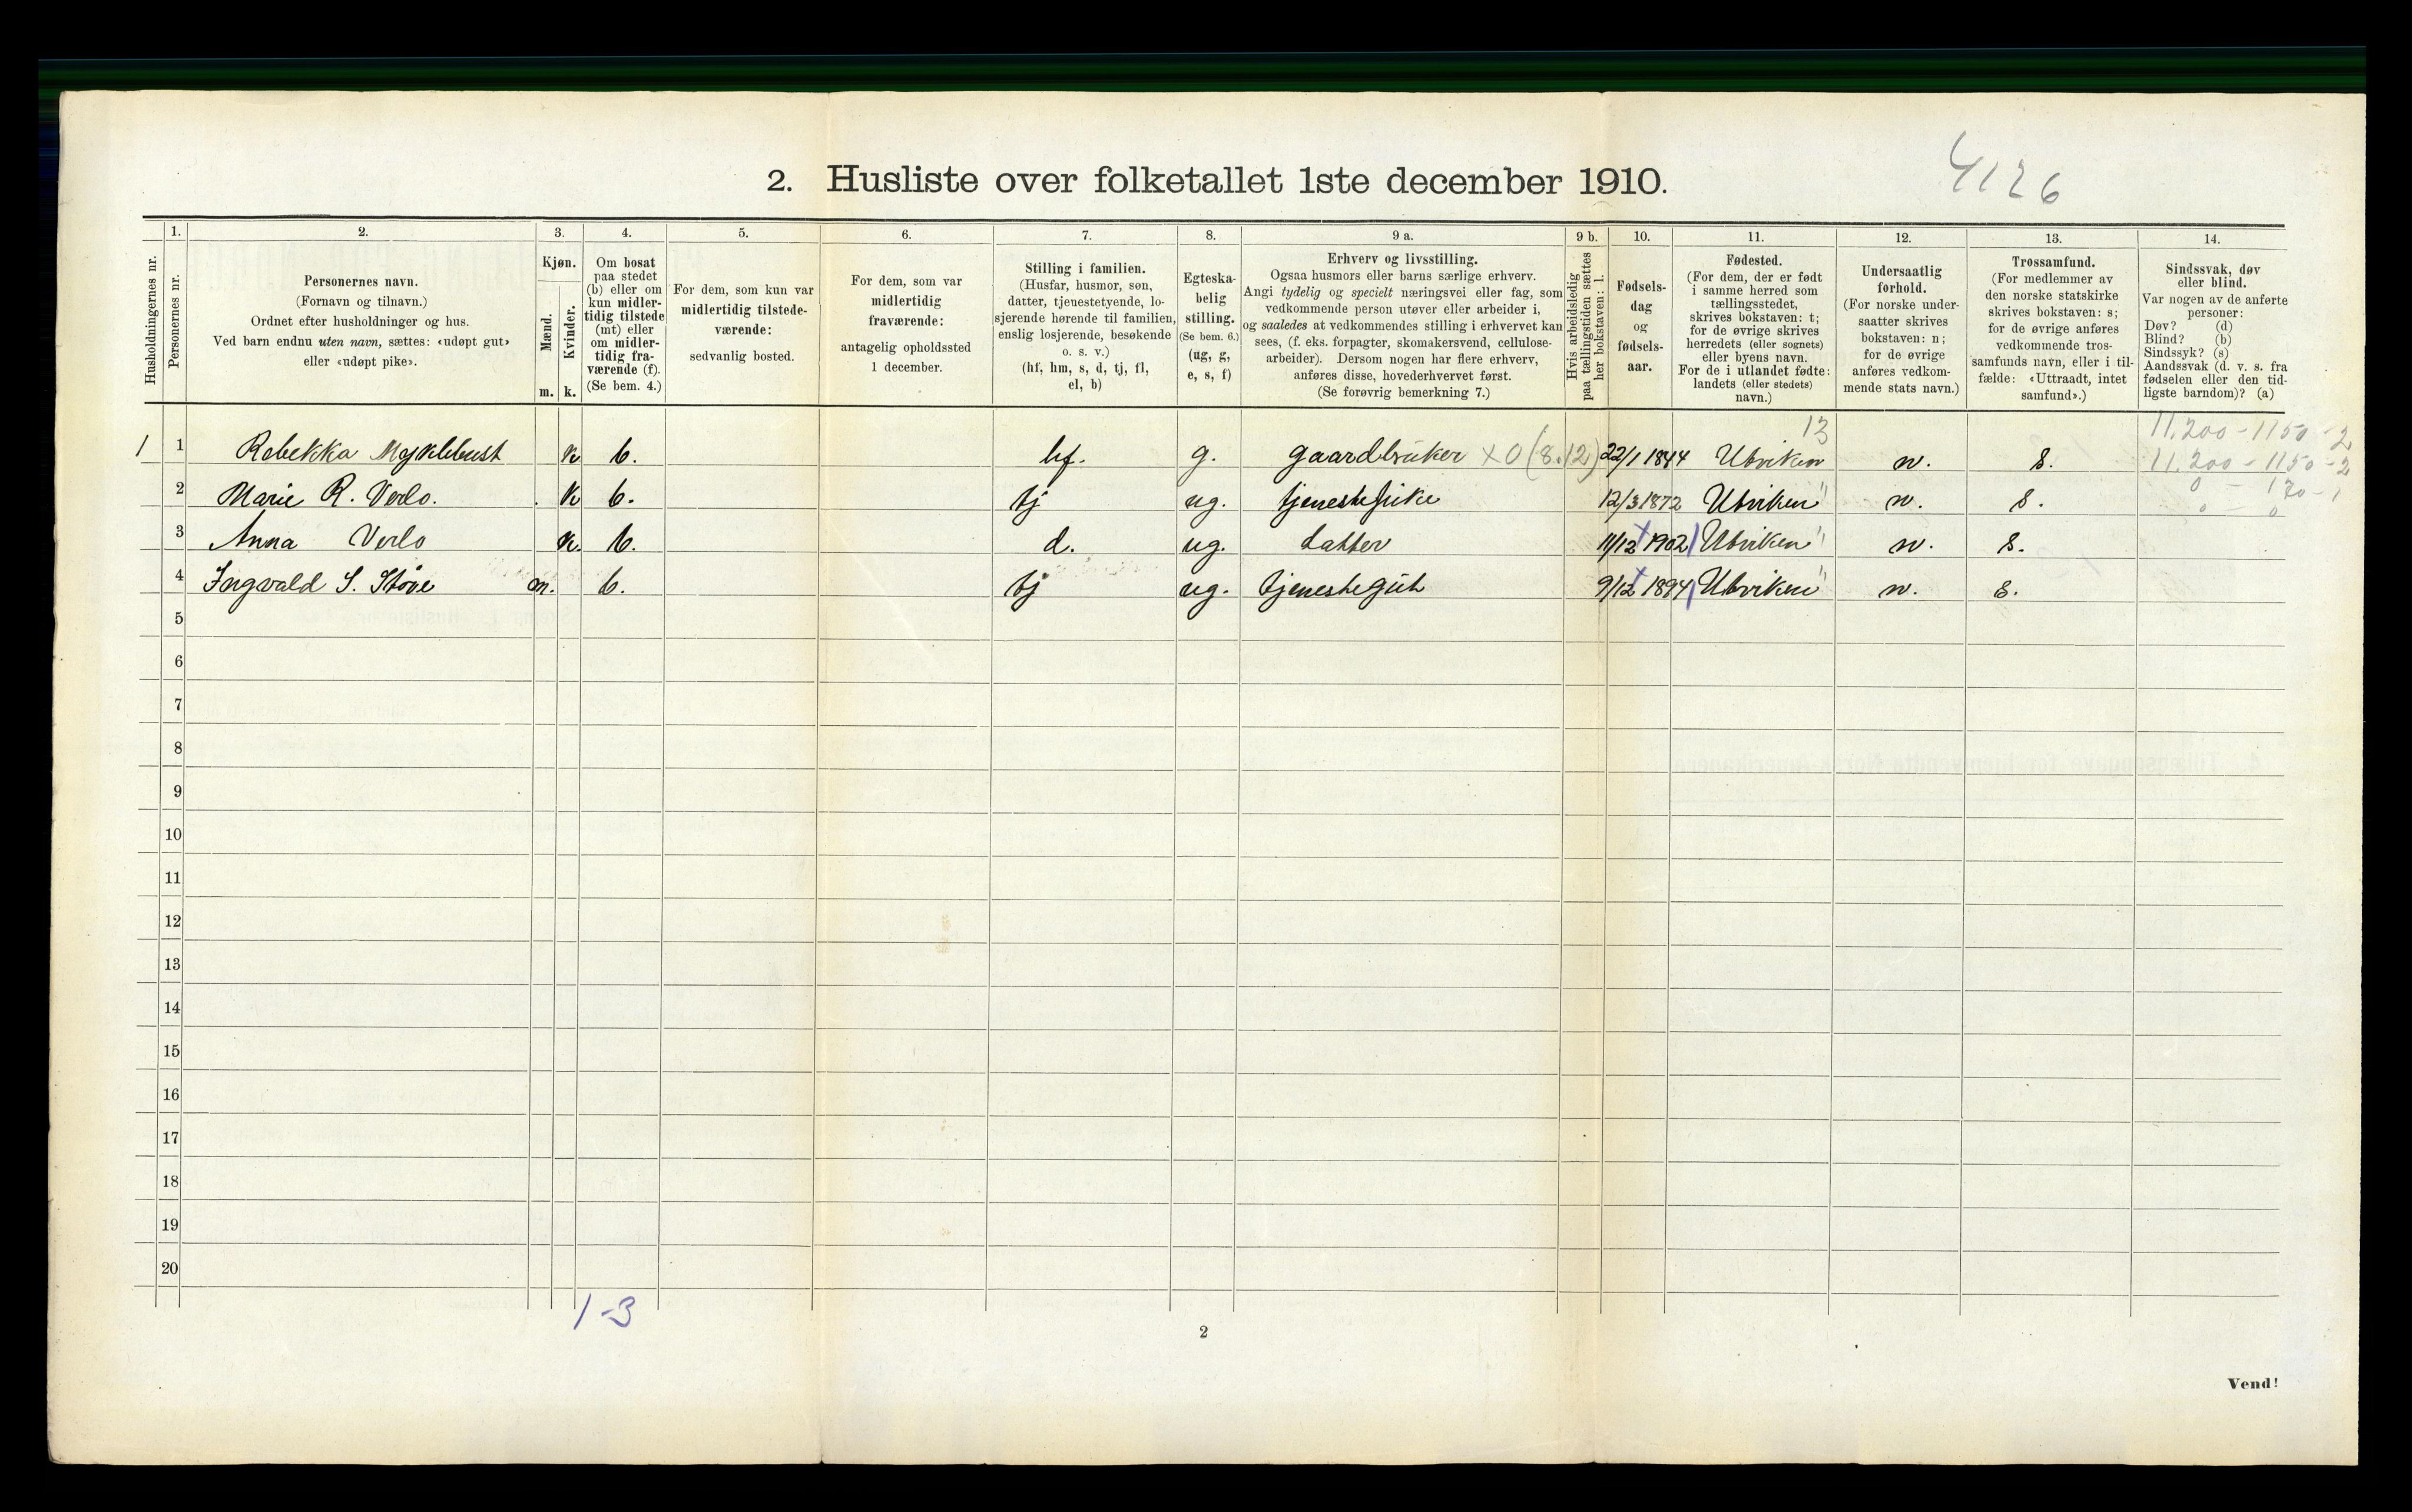 4126
2. Husliste over folketallet 1ste december 1910.
Husholdningernes nr.
1.
Personernes nr.
2.
Personernes navn.
(Fornavn og tilnavn.)
Ordnet efter husholdninger og hus.
Ved barn endnu uten navn, sættes: «udøpt gut»
eller «udøpt pike».
3.
Kjøn.
Mænd.
Kvinder.
m. k.
4.
Om bosat
paa stedet
(b) eller om
kun midler-
tidig tilstede
(mt) eller
om midler-
tidig fra-
værende (f).
(Se bem. 4.)
5.
For dem, som kun var
midlertidig tilstede-
værende:
sedvanlig bosted.
6.
For dem, som var
midlertidig
fraværende:
antagelig opholdssted
1 december.
7.
Stilling i familien.
(Husfar, husmor, søn,
datter, tjenestetyende, lo-
sjerende hørende til familien,
enslig losjerende, besøkende
o. s. v.)
(hf, hm, s, d, tj, fl,
el, b)
8.
Egteska-
belig
stilling.
(Se bem. 6.)
(ug, g,
e, s, f)
9 a.
Erhverv og livsstilling.
Ogsaa husmors eller barns særlige erhverv.
Angi tydelig og specielt næringsvei eller fag, som
vedkommende person utøver eller arbeider i,
og saaledes at vedkommendes stilling i erhvervet kan
sees, (f. eks. forpagter, skomakersvend, cellulose-
arbeider). Dersom nogen har flere erhverv,
anføres disse, hovederhvervet først.
(Se forøvrig bemerkning 7.)
9 b.
Hvis arbeidsledig
paa tællingstiden sættes
her bokstaven: l.
10.
Fødsels-
dag
og
fødsels-
aar.
11.
Fødested.
(For dem, der er født
i samme herred som
tællingsstedet,
skrives bokstaven: t;
for de øvrige skrives
herredets (eller sognets)
eller byens navn.
For de i utlandet fødte:
landets (eller stedets)
navn.)
12.
Undersaatlig
forhold.
(For norske under-
saatter skrives
bokstaven: n;
for de øvrige
anføres vedkom-
mende stats navn.)
13.
Trossamfund.
(For medlemmer av
den norske statskirke
skrives bokstaven: s;
for de øvrige anføres
vedkommende tros-
samfunds navn, eller i til-
fælde: «Uttraadt, intet
samfund».)
14.
Sindssvak, døv
eller blind.
Var nogen av de anførte
personer:
Døv? (d)
Blind? (b)
Sindssyk? (s)
Aandssvak (d. v. s. fra
fødselen eller den tid-
ligste barndom)? (a)
13
11.200 - 1150 - 2
1 1 Rebekka Myklebust k b. hf. g. gaardbruker x 0 (8.12) 22/1 1844 Utviken n. s. 11.200 - 1150 - 2
0 - 170 - 1
2 Marie R. Verlo. k b. tj ug. tjenestepike 12/3 1872 Utviken " n. s. 0 - 0
3 Anna Verlo k. b. d. ug. Datter 11/12 1902 Utviken " n. s.
4 Ingvald S. Støve m. b. tj ug. tjenestegut 9/12 1894 Utviken " n. s.
5
6
7
8
9
10
11
12
13
14
15
16
17
18
19
20
1-3
2
Vend!